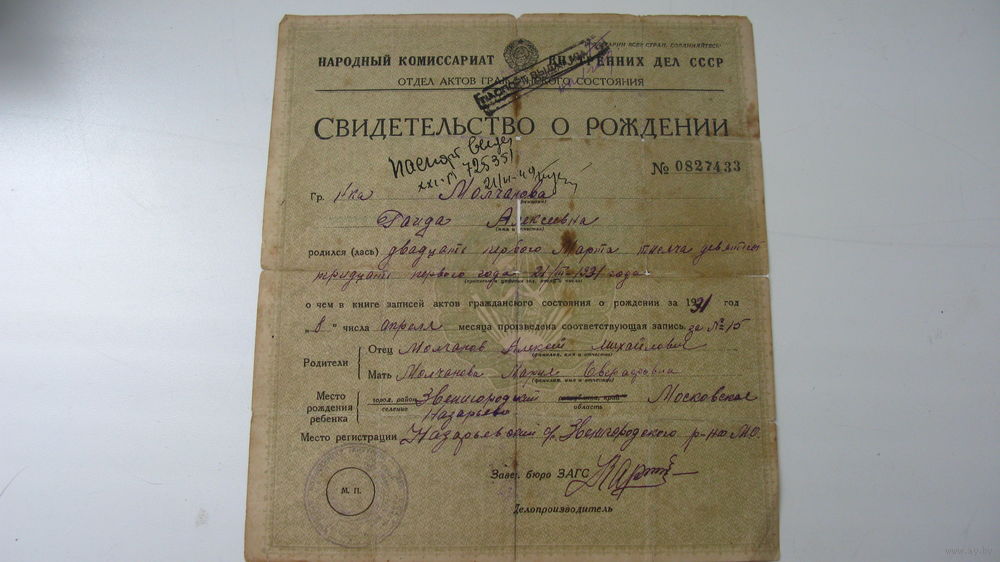 НАРОДНЫЙ КОМИССАРИАТ ВНУТРЕННИХ ДЕЛ СССР
ОТДЕЛ АКТОВ ГРАЖДАНСКОГО СОСТОЯНИЯ
ПАСПОРТ ВЫДАН
СВИДЕТЕЛЬСТВО О РОЖДЕНИИ
Паспорт выдан
№ 0827433
725351
Гр. г-ка Молчанова
Алексеевна
(имя и отчество)
родился (лась) двадцать первого Марта тысяча девятьсот
тридцать первого года 21/III-1931 года
о чем в книге записей актов гражданского состояния о рождении за 1931 год
„8“ числа апреля месяца произведена соответствующая запись за № 15
Родители
Отец Молчанов Алексей Михайлович
(фамилия, имя и отчество)
Мать Молчанова Мария
(фамилия, имя и отчество)
Место рождения ребенка
город, район Звенигородский область Московская
селение Назарьево
Место регистрации Назарьевский с/с Звенигородского р-на М.О.
М. П.
Завед. бюро ЗАГС
Делопроизводитель
www.ay.by